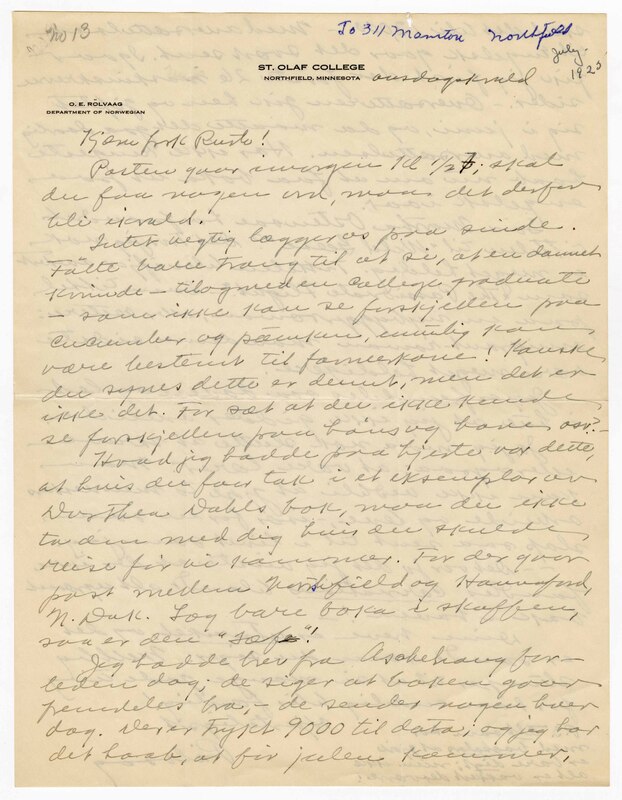 No 13
To 311 Manitou Northfield
July
1925
ST. OLAF COLLEGE
NORTHFIELD, MINNESOTA
onsdagskveld
O. E. ROLVAAG
DEPARTMENT OF NORWEGIAN
Kjære frk Rusto!
Posten gaar imorgen Kl 1/2 7; skal
du faa nogen ord, maa det derfor
bli ikveld!
Intet vegtig lægger os paa sinde.
Følte bare trang til at si, at en dannet
kvinde – tilogmed en College graduate
– som ikke kan se forskjellen paa
cucumber og pumken, umulig kan
være bestemt til farmerkone! Kanske
du synes dette er demt, men det er
ikke det. For sæt at du ikke kunde
se forskjellen paa høns og hane osv?–
Hvad jeg hadde paa hjerte var dette,
at hvis du faar tak i et eksemplar av
Dorthea Dahls bok, maa du ikke
ta den med dig hvis du skulde
reise før vi kommer. For der gaar
post mellem Northfield og Hannaford,
N. Dak. Læg bare boka i skuffen,
saa er den "sæfe"!
Jeg hadde brev fra Aschehoug for-
leden dag; de siger at boken gaar
fremdeles bra, – de sender nogen hver
dag. Der er trykt 9000 til data; og jeg har
det haab, at før julen kommer,